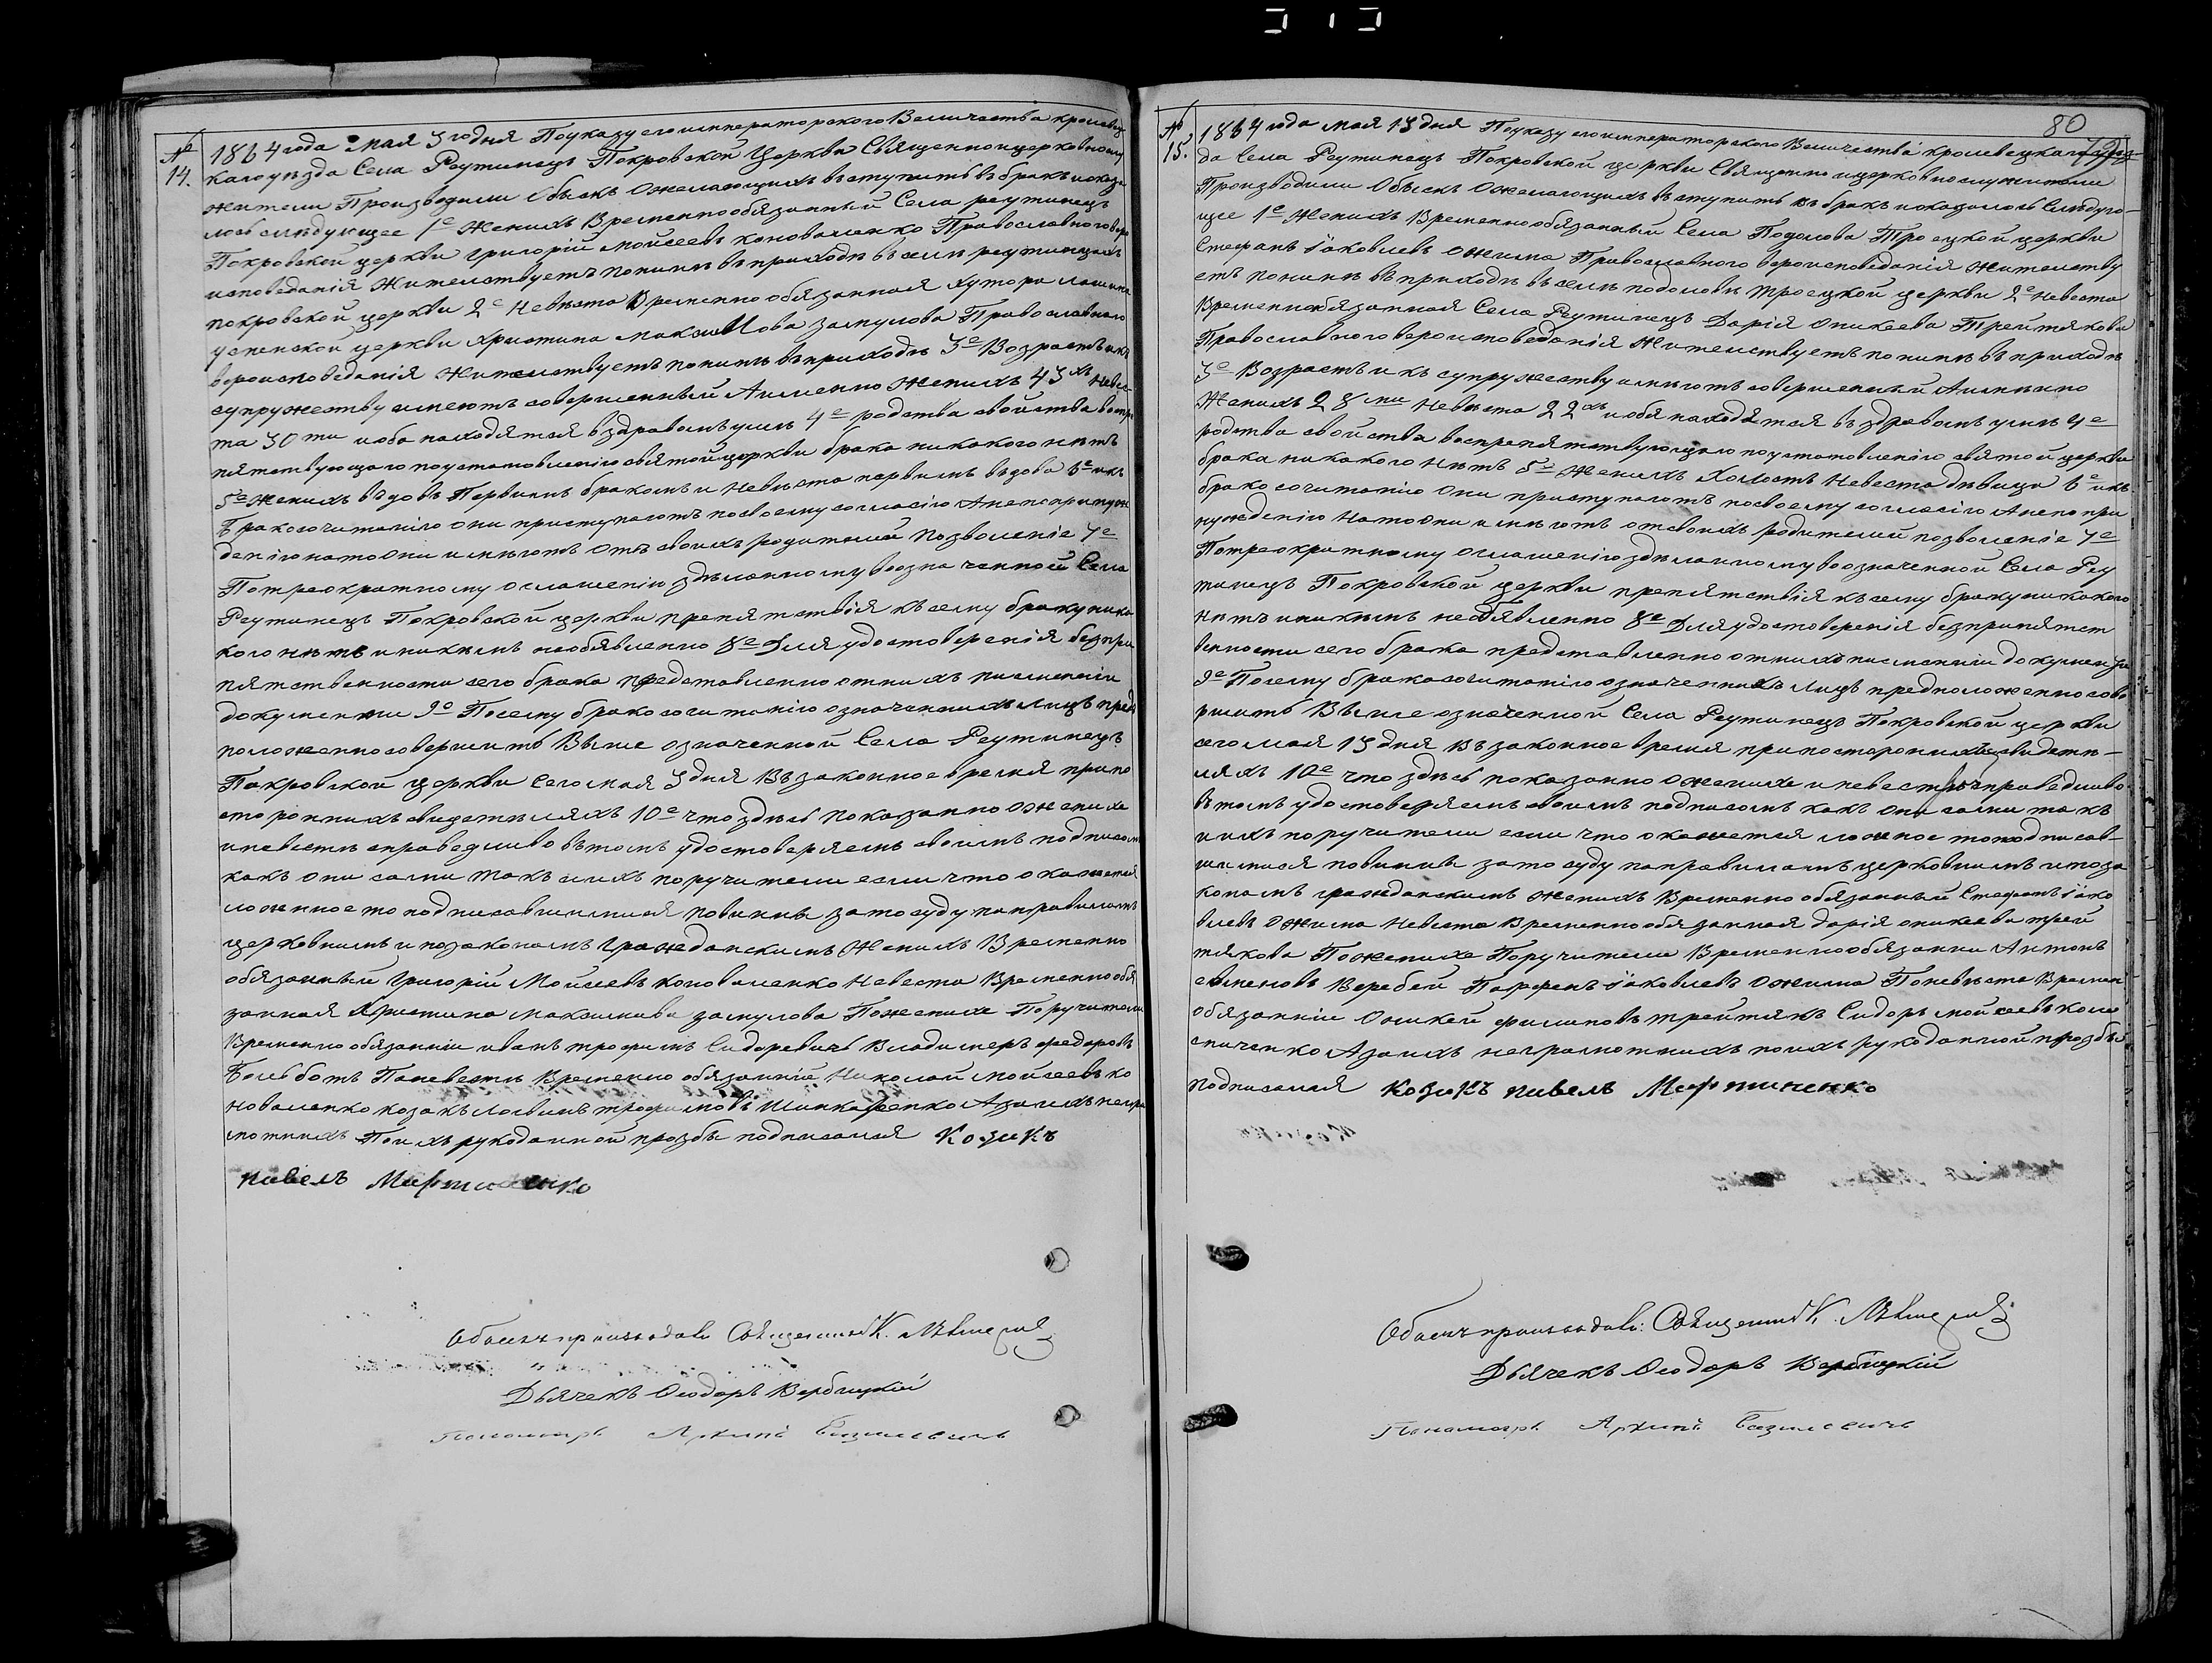 № 14.
1864 года мая 3 го дня По указу его императорского Величества кролевец
кого уезда Села Реутинецъ Покровской Церкви Священно и церковнослу
жители Производили Обыскъ О желающихъ вступить въ бракъ и оказа
лось следующее 1е Женихъ Временно обязанный Села реутинецъ
Покровской церкви григорій мойсеевъ коноваленко Православного веро
исповеданія Жительствуетъ понине въ приходе въ селе реутинцахъ
покровской церкви 2е Невеста Временно обязанная Хутора
успенской церкви христина максимова Православного
вероисповеданія Жительствуетъ понине въ приходе 3е Возрастъ и къ
супружеству имеютъ совершенный А именно Женихъ 43хъ Невес
та 30ти и оба находятся в здравомъ уме 4е родства свойства воспре
пятствующаго по установленію святой церкви брака никакого нетъ
5е Женихъ вдовъ Первимъ бракомъ и Невеста первимъ вдова 6е и къ
Бракосочитанію они приступаютъ по своему согласію А не по принуж
денію на то они имеютъ отъ своихъ родителей позволеніе 7е
По треократному оглашенію зделанному во означенной Села
Реутинецъ Покровской церкви препятствія къ сему браку ника
кого нетъ и никемъ необявленно 8е Для удостоверенія безпри
пятственности сего брака представленно от них писменніи
документи 9е Посему бракосочитанію означенних Лицъ пред
положенно совершить В выше означенной Села Реутинецъ
Покровской церкви сего мая 3 дня В законное время при по
сторонних свидетелях 10е что здесь показанно О женихе
и невесте справедливо въ томъ удостоверяемъ своимъ подписомъ
какъ они сами такъ и ихъ поручители если что окажется
ложное то подписавшимися повинни за то суду по правиламъ
церковнимъ и по законамъ гражданскимъ Женихъ Временно
обязанный григорій Мойсеевъ коноваленко Невеста Временно обя
занная Христина максимова По женихе Поручители
Временно обязанніи иванъ трофимъ Сидоревичъ Владимеръ федоровъ
По невесте Временно обязанній Николай мойсеевъ ко
новаленко козакъ трофимовъ А за ихъ негра
мотнихъ По ихъ рукоданной прозбе подписался Козакъ
павелъ Мартиненко
Обыскъ производилъ Священникъ К.
Дьячекъ Феодоръ Вербицкій
Пономарь Архипъ Базилевичъ
80
79
№ 15.
1864 года мая 13 дня По указу его императорского Величества кролевецкаго уез
да Села Реутинецъ Покровской церкви Священно и церковнослужители
Производили Обыск О желающихъ вступить въ бракъ и оказалось Следую-
щее 1е Женихъ Временно обязанный Села Подолова Троецкой церкви
Стефанъ іаковлевъ Ожима Православного вероисповеданія жительству
етъ понине въ приходе въ селе подолове троецкой церкви 2е Невеста
Временнобязанная Села Реутинецъ Дарія оникеева Трейтякова
Православного вероисповеданія Жительствуетъ понине въ приходе
3е Возрастъ и къ супружеству имеютъ совершенный А именно
Женихъ 28ми Невеста 22хъ и обя находятся въ здравомъ уме 4е
родства свойства воспрепятствующаго по установленію святой церкви
брака никакого нетъ 5е Женихъ Холостъ Невеста девица 6е и къ
бракосочитанію они приступаютъ по своему согласію А не по при
нужденію На то они имеютъ от своихъ родителей позволеніе 7е
По треократному оглашенію зделанному во означенной Села Реу
тинецъ Покровской церкви препятствія къ сему браку никакого
нетъ и никемъ необявленно 8е Для удостоверенія безприпятст
венности сего брака представленно от них писменніи документи
9е Посему бракосочитанію означенних Лицъ предположенно сове
ршить В выше означенной Села Реутинецъ Покровской церкви
сего мая 13 дня В законное время при посторонних свидете-
лях 10е что здесь показанно О женихе и невесте справедливо
въ томъ удостоверяемъ своимъ подписомъ какъ они сами такъ
и ихъ поручители если что окажется ложное то подписав-
шимися повинни за то суду по правиламъ церковнимъ и по за
конамъ гражданскимъ Женихъ Временно обязанный Стефанъ іако
влевъ Ожима Невеста Временно обязанная дарія оникеева трей
тякова По женихе Поручители Временно обязанни Антонъ
семеновъ Воробей Парфенъ іаковлевъ Ожима По невесте Времен
обязанніи Оникей филиповъ трейтякъ Сидоръ мойсеевъ коно
А за ихъ неграмотнихъ по ихъ рукоданной прозбе
подписался Козакъ павелъ Мартиненко
Обыскъ производилъ: Священникъ К.
Дьячекъ Феодоръ Вербицкій
Пономарь Архипъ Базилевичъ